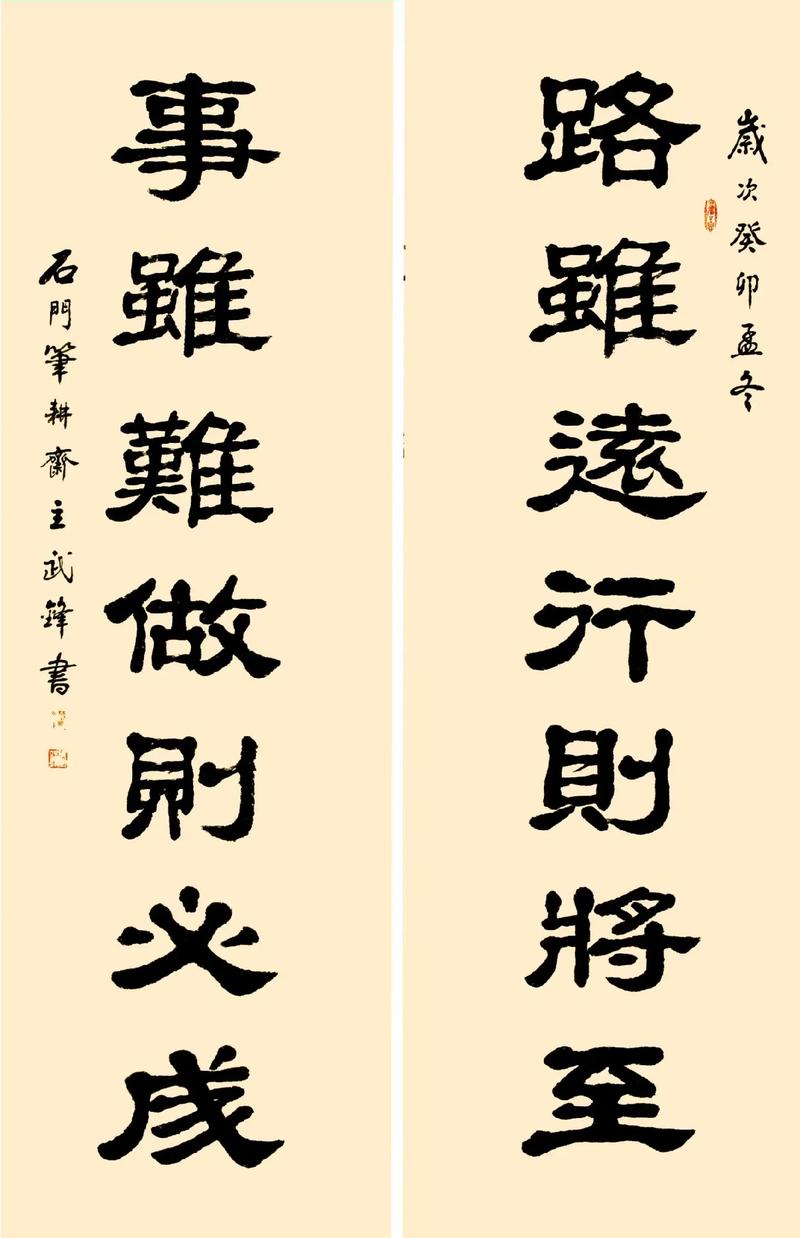 歲次癸卯孟冬
路雖遠行則將至
事雖難做則必成
石門筆耕齋主武鋒書